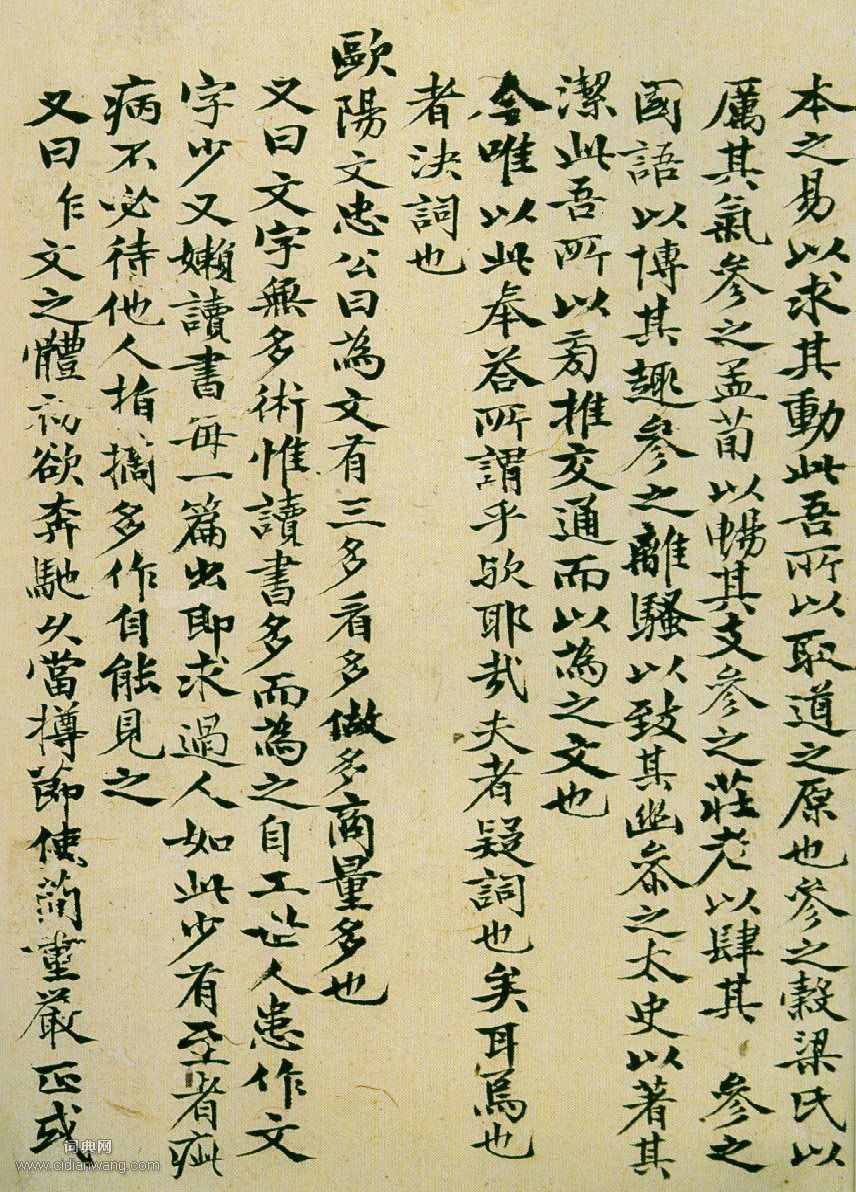 本之易以求其動此吾所以取道之原也參之穀梁氏以
厲其氣參之孟荀以暢其支參之莊老以肆其 參之
國語以博其趣參之離騷以致其幽參之太史以著其
潔此吾所以旁推交通而以為之文也
今唯以此奉荅所謂乎欤耶哉夫者疑詞也矣耳焉也
者决詞也
歐陽文忠公曰為文有三多看多做多商量多也
又曰文字無多術惟讀書多而為之自工世人患作文
字少又嬾讀書每一篇出即求過人如此少有至者疵
病不必待他人指摘多作自能見之
又曰作文之體初欲奔馳久當撙節使簡重嚴正或
词典网
www.cidianwang.com